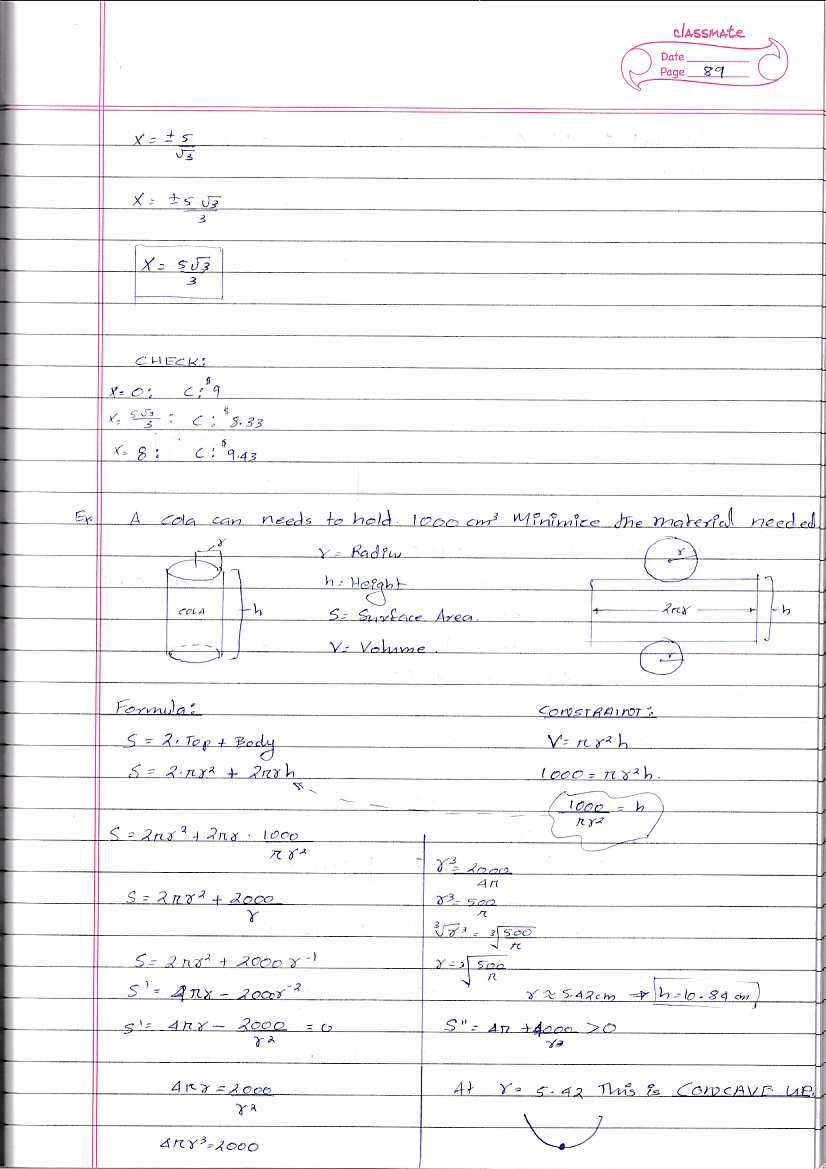 classmate
Date
Page 89
X = ± 5/√3
X = ± 5√3/3
X = 5√3/3
CHECK:
X = 0: C: $9
X = 5√3/3 : C: $8.33
X = 8: C: $9.43
Ex. A cola can needs to hold 1000 cm³ Minimize the material needed.
r
COLA
h
r = Radius
h = Height
S = Surface Area.
V = Volume.
r
2πr
h
r
Formula:
S = 2·Top + Body
S = 2·πr² + 2πrh
CONSTRAINT:
V = πr²h
1000 = πr²h.
1000/πr² = h
S = 2πr² + 2πr · 1000/πr²
S = 2πr² + 2000/r
S = 2πr² + 2000 r⁻¹
S' = 4πr − 2000r⁻²
S' = 4πr − 2000/r² = 0
4πr = 2000/r²
4πr³ = 2000
r³ = 2000/4π
r³ = 500/π
∛r³ = ∛500/π
r = ∛500/π
r ≈ 5.42cm ⇒ h = 10.84 cm
S" = 4π + 4000/r³ > 0
At r = 5.42 This is CONCAVE UP.